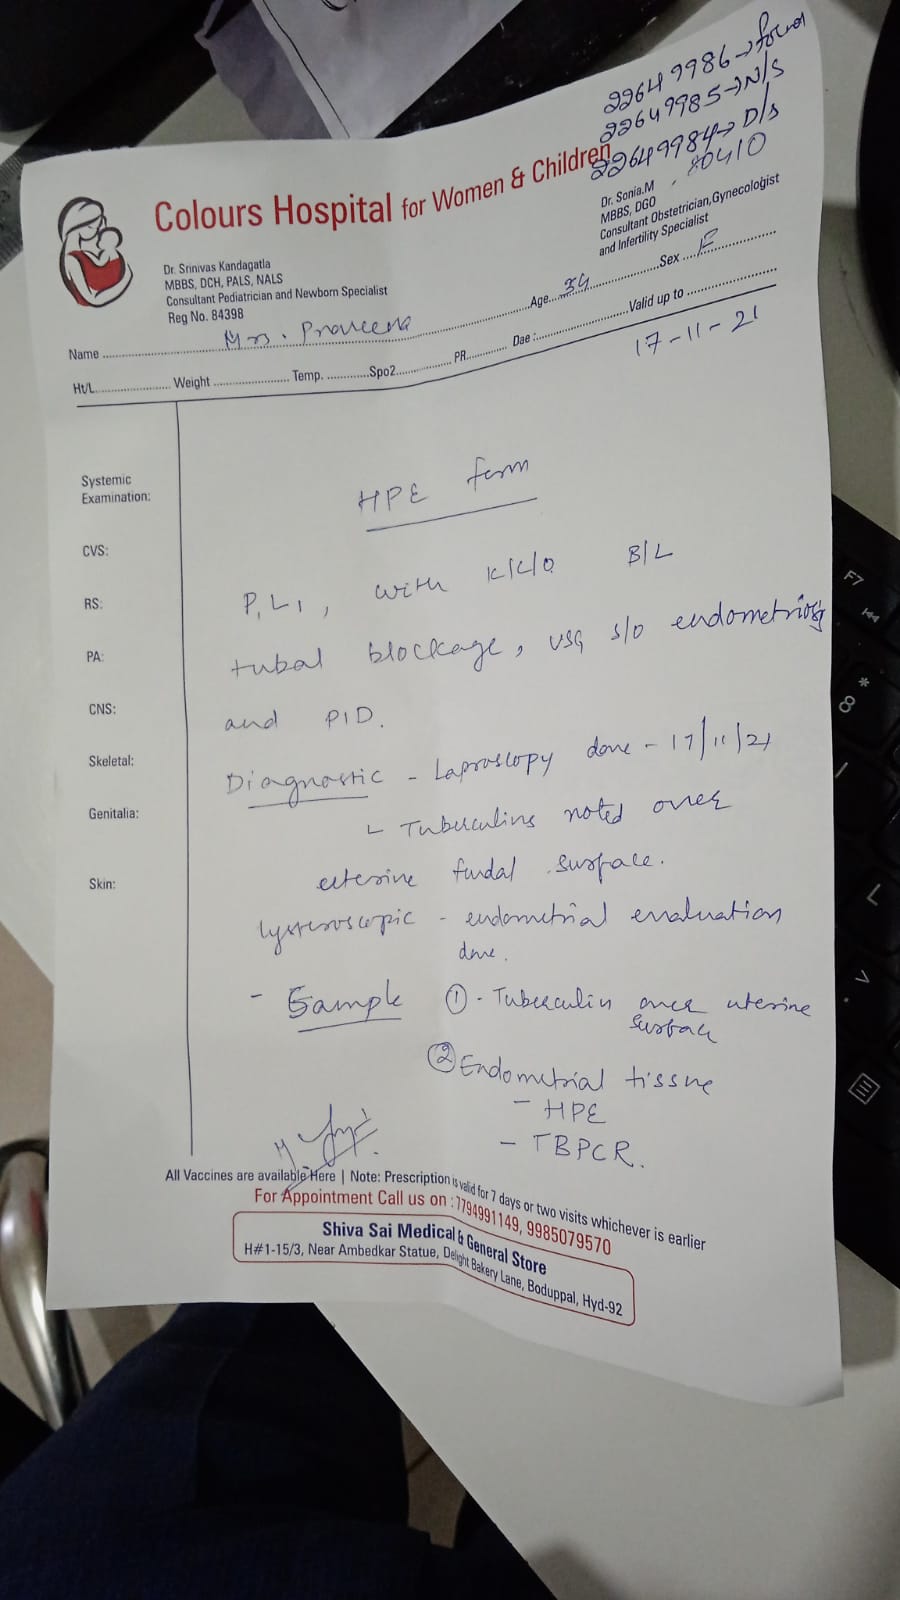 22649986→
22649985→N/S
22649984→D/S
80410
Colours Hospital for Women & Children
Dr. Srinivas Kandagatla
MBBS, DCH, PALS, NALS
Consultant Pediatrician and Newborn Specialist
Reg No. 84398
Dr. Sonia.M
MBBS, DGO
Consultant Obstetrician, Gynecologist
and Infertility Specialist
Name Mrs. Praveena Age 34 Sex F
Ht/L Weight Temp. Spo2 PR Dae : Valid up to
17-11-21
Systemic
Examination:
CVS:
RS:
PA:
CNS:
Skeletal:
Genitalia:
Skin:
HPE form
P1L1, with K/C/O B/L
tubal blockage, USG s/o endometriosis
and PID.
Diagnostic - Laproscopy done - 17/11/21
Tuberculins noted over
uterine fundal surface.
hysteroscopic - endometrial evaluation
done.
- Sample ① - Tuberculin over uterine
surface
② Endometrial tissue
- HPE
- TBPCR.
All Vaccines are available Here | Note: Prescription is valid for 7 days or two visits whichever is earlier
For Appointment Call us on : 7794991149, 9985079570
Shiva Sai Medical & General Store
H#1-15/3, Near Ambedkar Statue, Delight Bakery Lane, Boduppal, Hyd-92
F7
*
8
L
>
.